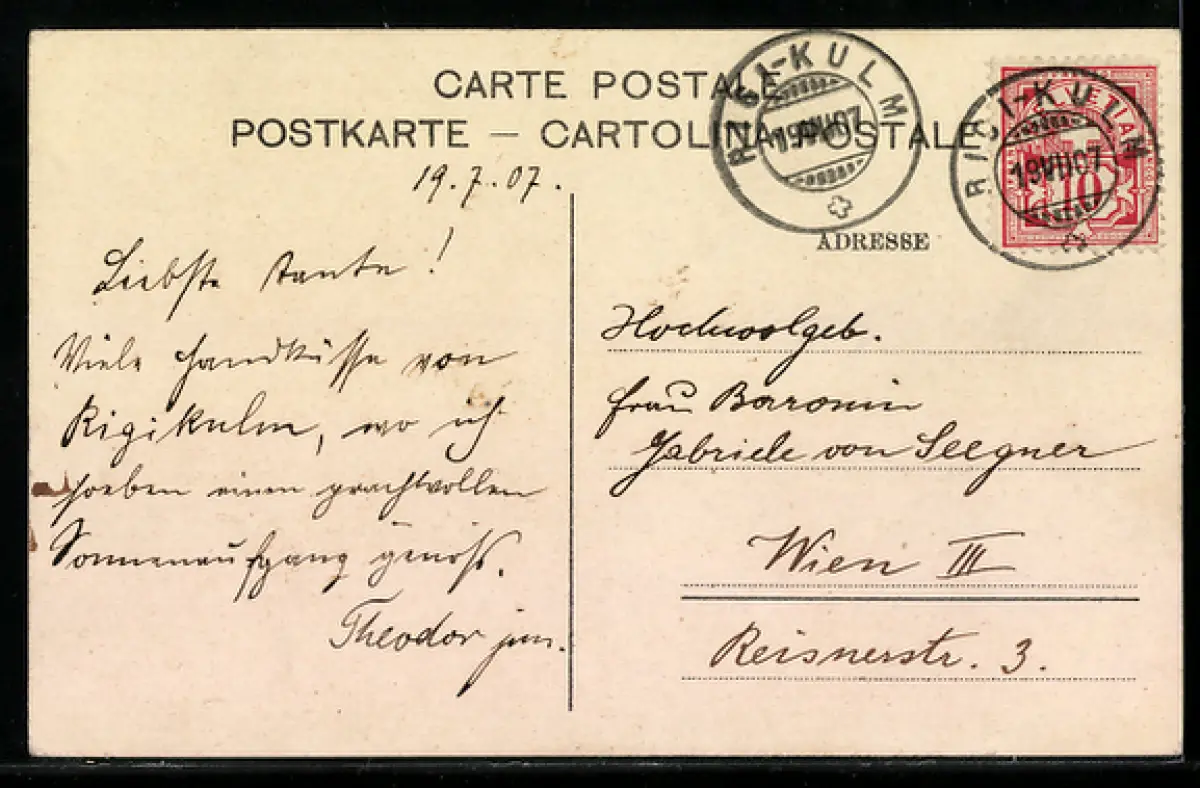 CARTE POSTALE
POSTKARTE – CARTOLINA POSTALE
RIGI-KULM
19VII07
RIGI-KULM
19VII07
HELVETIA
10
19.7.07.
Liebste Tante!
Viele Handküsse von
Rigikulm, wo ich
soeben einen prachtvollen
Sonnenaufgang genoß.
Theodor jun.
ADRESSE
Hochwolgeb.
Frau Baronin
Gabriele von Seegner
Wien III
Reisnerstr. 3.